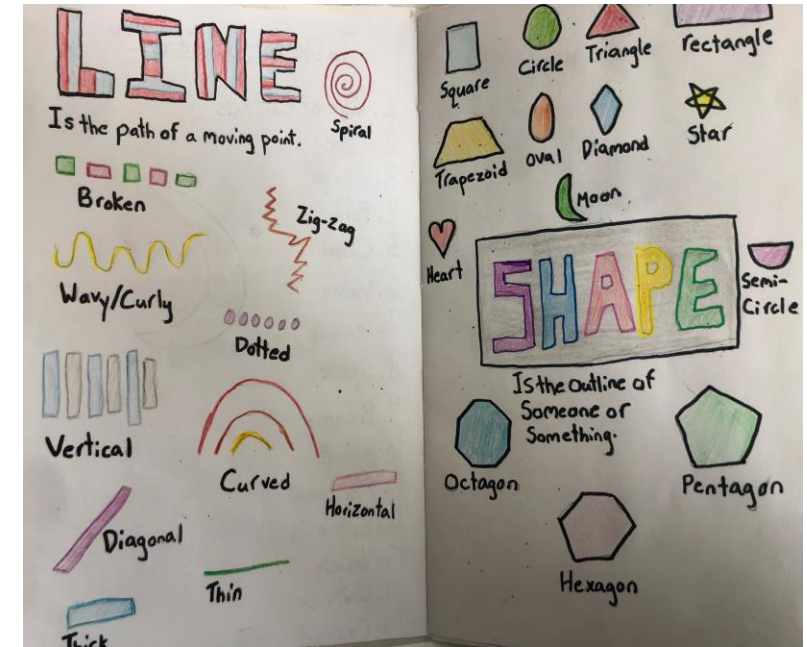 LINE
Is the path of a moving point.
Spiral
Broken
Zig-zag
Wavy/Curly
Dotted
Vertical
Curved
Horizontal
Diagonal
Thin
Thick
Square
Circle
Triangle
rectangle
Trapezoid
Oval
Diamond
Star
Moon
Heart
SHAPE
Semi-
Circle
Is the outline of
Someone or
Something.
Octagon
Pentagon
Hexagon